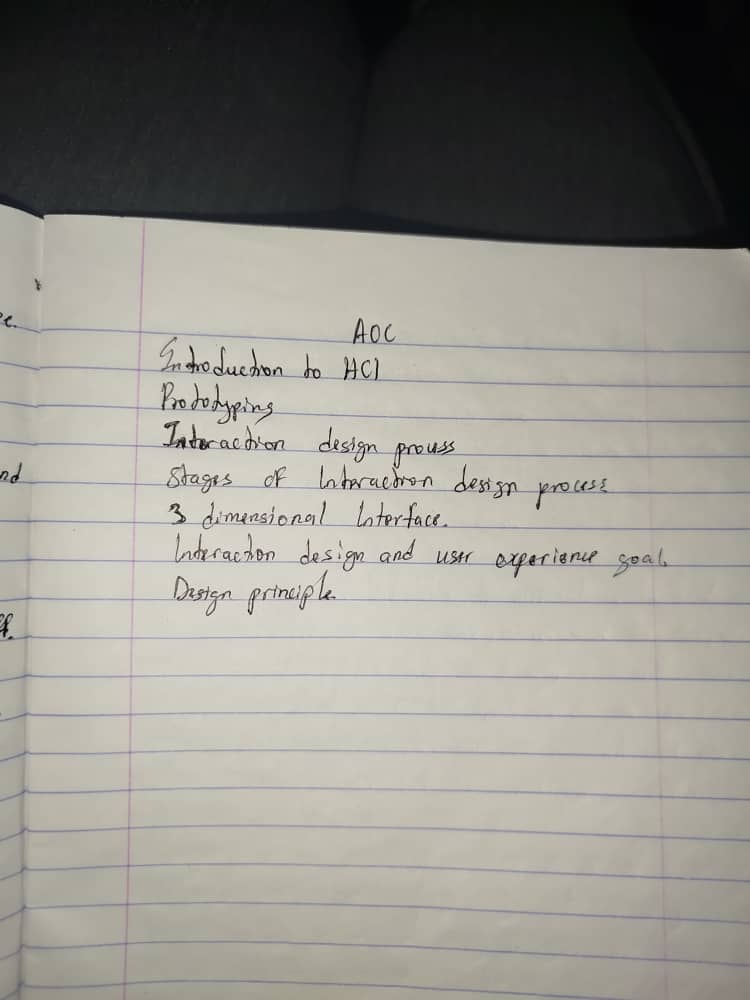 AOC
Introduction to HCI
Prototyping
Interaction design process
Stages of Interaction design process
3 dimensional Interface.
Interaction design and user experience goal.
Design principle.
nd